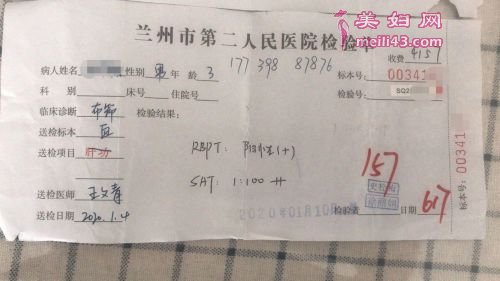 美妇网
meili43.com
兰州市第二人民医院检验单
收费 4157
病人姓名 性别 男 年龄 3 177398 87876 标本号: 00341
科别 床号 住院号 检验号: SQ2
临床诊断 布鲁 检验结果:
送检标本 血
送检项目 肝功 RBPT: 阳性(+)
SAT: 1:100 ++ 157
送检医师
送检日期 2020.1.4 2020年01月10日 检验者 日期 617
标本号: 00341